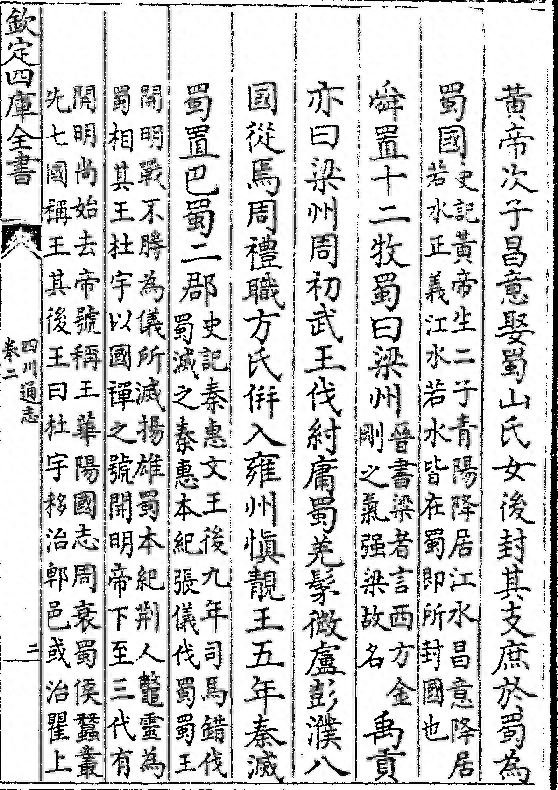 黃帝次子昌意娶蜀山氏女後封其支庶於蜀為
蜀國
史記黃帝生二子青陽降居江水昌意降居
若水正義江水若水皆在蜀即所封國也
舜置十二牧蜀曰梁州
晉書梁者言西方金
剛之氣强梁故名
禹貢
亦曰梁州周初武王伐紂庸蜀羌髳微盧彭濮八
國從焉周禮職方氏併入雍州慎靚王五年秦滅
蜀置巴蜀二郡
史記秦惠文王後九年司馬錯伐
蜀滅之秦惠本紀張儀伐蜀蜀王
開明戰不勝為儀所滅揚雄蜀本紀荆人鼈靈為
蜀相其王杜宇以國禪之號開明帝下至三代有
開明尚始去帝號稱王華陽國志周衰蜀侯蠶叢
先七國稱王其後王曰杜宇移治郫邑或治瞿上
欽定四庫全書
四川通志
卷二
二